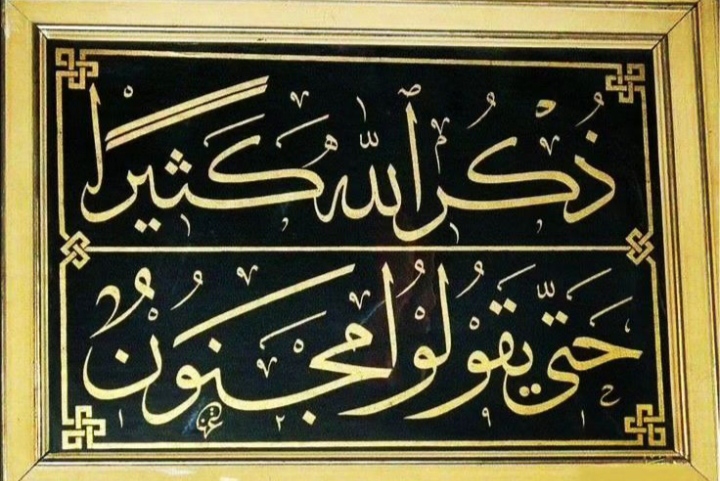 ذُكْرُ ٱللّٰه كَثيرًا
حَتّىٰ يَقُولُوا مَجْنُونٌ
١٢٩١